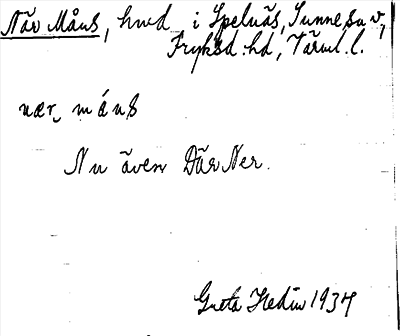 När Måns, hmd i Spelnäs, Sunne sn v,
Fryksd. hd, Värml. l.
nær, máns
Nu även Där Ner.
Greta Hedin 1934